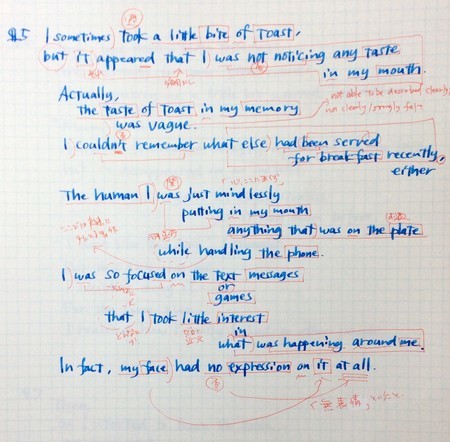 I sometimes took a little bite of toast,
but it appeared that I was not noticing any taste
in my mouth.
Actually,
not able to be described clearly
the taste of toast in my memory
not clearly/strongly felt
was vague.
I couldn't remember what else had been served
for breakfast recently,
either
The human I was just mindlessly
putting in my mouth
anything that was on the plate
while handling the phone.
I was so focused on the text messages
or
games
that I took little interest
in
what was happening around me.
In fact, my face had no expression on it at all.
無表情